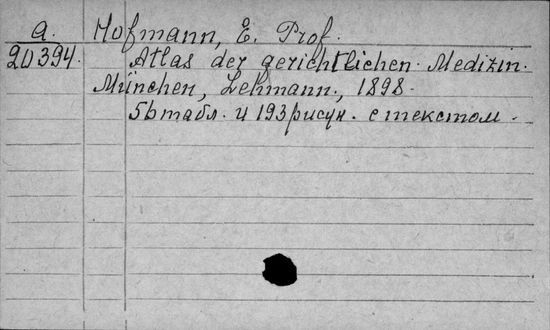 a. Hofmann, E. Prof.
20394. Atlas der gerichtlichen Medizin.
München, Lehmann, 1898.
56 табл. и 193 рисун. с текстом.